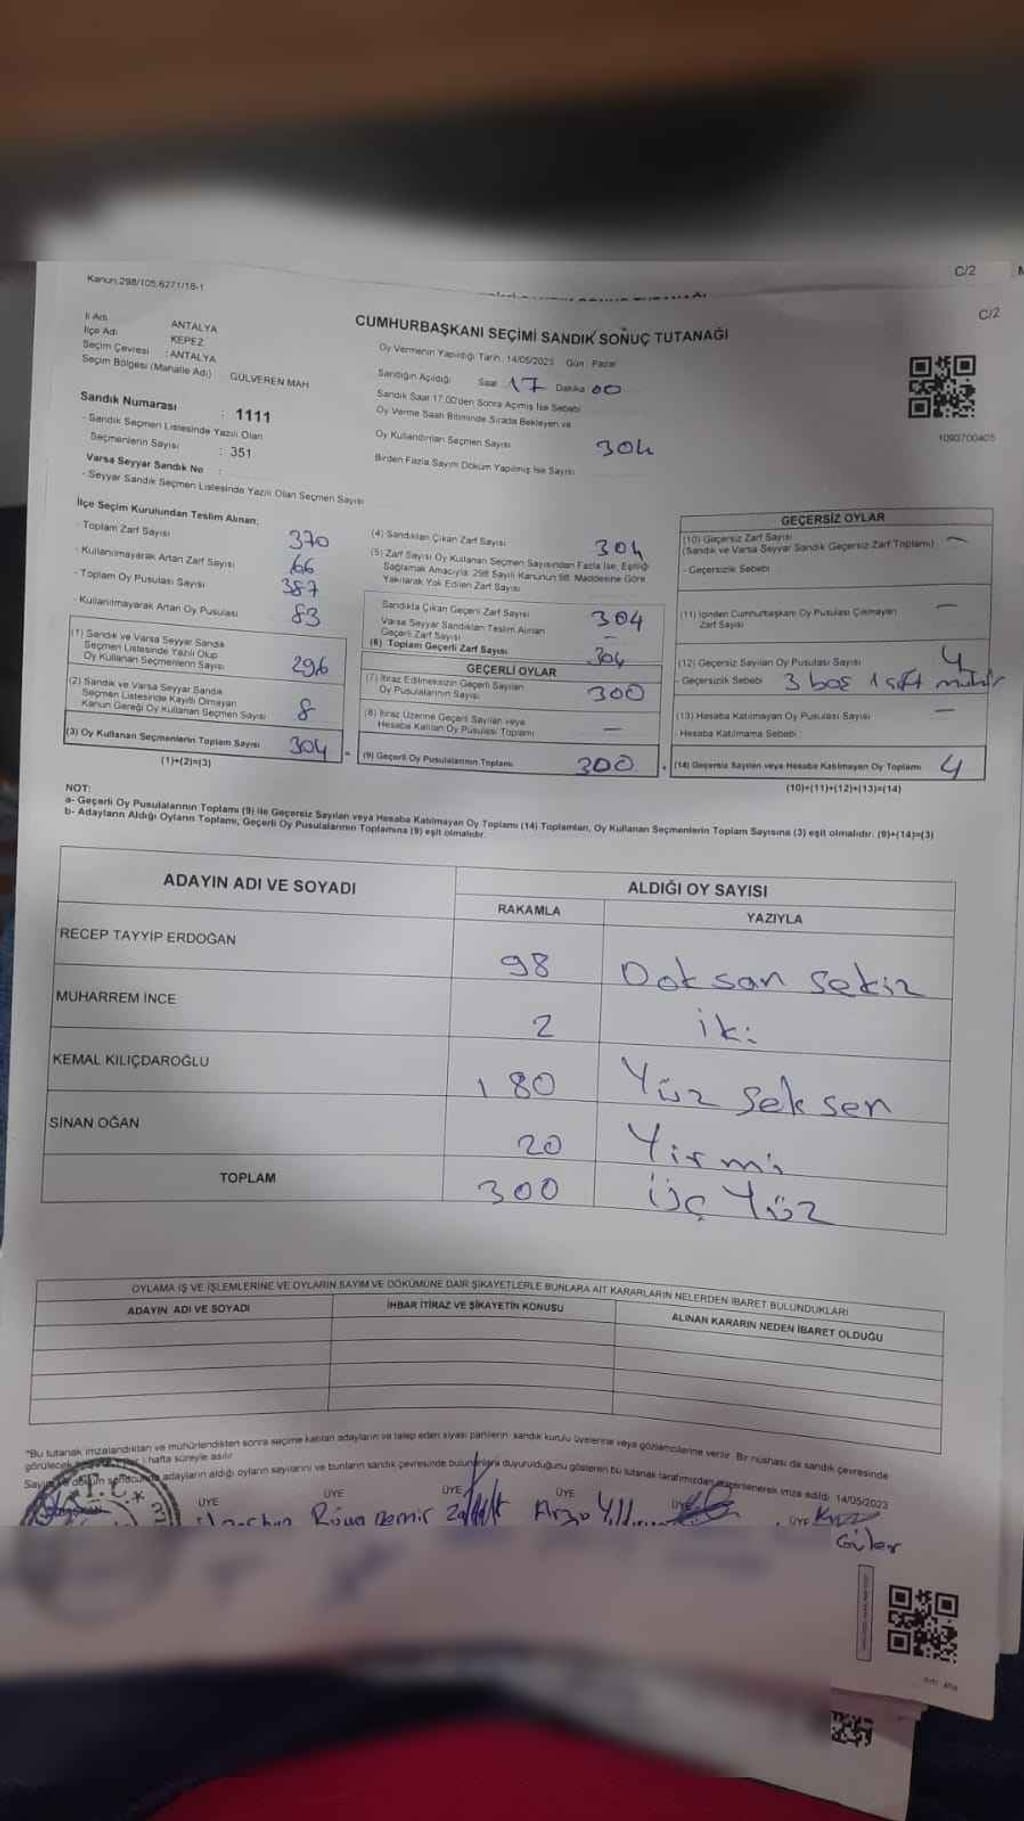 C/2
Kanun:298/105,6271/18-1
C/2
CUMHURBAŞKANI SEÇİMİ SANDIK SONUÇ TUTANAĞI
İl Adı ANTALYA
İlçe Adı KEPEZ
Seçim Çevresi : ANTALYA
Seçim Bölgesi (Mahalle Adı) GÜLVEREN MAH
Sandık Numarası : 1111
- Sandık Seçmen Listesinde Yazılı Olan
Seçmenlerin Sayısı : 351
Varsa Seyyar Sandık No :
- Seyyar Sandık Seçmen Listesinde Yazılı Olan Seçmen Sayısı
Oy Vermenin Yapıldığı Tarih: 14/05/2023 Gün: Pazar
Sandığın Açıldığı Saat 17 Dakika 00
Sandık Saat 17.00'den Sonra Açılmış İse Sebebi
Oy Verme Saati Bitiminde Sırada Bekleyen ve
Oy Kullandırılan Seçmen Sayısı 304
Birden Fazla Sayım Döküm Yapılmış İse Sayısı
1090700405
İlçe Seçim Kurulundan Teslim Alınan;
- Toplam Zarf Sayısı 370
- Kullanılmayarak Artan Zarf Sayısı 66
- Toplam Oy Pusulası Sayısı 387
- Kullanılmayarak Artan Oy Pusulası 83
(1) Sandık ve Varsa Seyyar Sandık
Seçmen Listesinde Yazılı Olup
Oy Kullanan Seçmenlerin Sayısı 296
(2) Sandık ve Varsa Seyyar Sandık
Seçmen Listesinde Kayıtlı Olmayan
Kanun Gereği Oy Kullanan Seçmen Sayısı 8
(3) Oy Kullanan Seçmenlerin Toplam Sayısı 304
(1)+(2)=(3)
(4) Sandıktan Çıkan Zarf Sayısı 304
(5) Zarf Sayısı Oy Kullanan Seçmen Sayısından Fazla İse, Eşitliği
Sağlamak Amacıyla 298 Sayılı Kanunun 98. Maddesine Göre
Yakılarak Yok Edilen Zarf Sayısı
Sandıkta Çıkan Geçerli Zarf Sayısı 304
Varsa Seyyar Sandıktan Teslim Alınan
Geçerli Zarf Sayısı -
(6) Toplam Geçerli Zarf Sayısı 304
GEÇERLİ OYLAR
(7) İtiraz Edilmeksizin Geçerli Sayılan
Oy Pusulalarının Sayısı 300
(8) İtiraz Üzerine Geçerli Sayılan veya
Hesaba Katılan Oy Pusulası Toplamı -
= (9) Geçerli Oy Pusulalarının Toplamı 300
GEÇERSİZ OYLAR
(10) Geçersiz Zarf Sayısı -
(Sandık ve Varsa Seyyar Sandık Geçersiz Zarf Toplamı)
- Geçersizlik Sebebi
(11) İçinden Cumhurbaşkanı Oy Pusulası Çıkmayan -
Zarf Sayısı
(12) Geçersiz Sayılan Oy Pusulası Sayısı 4
- Geçersizlik Sebebi 3 boş 1 çift mühür
(13) Hesaba Katılmayan Oy Pusulası Sayısı -
- Hesaba Katılmama Sebebi :
+ (14) Geçersiz Sayılan veya Hesaba Katılmayan Oy Toplamı 4
(10)+(11)+(12)+(13)=(14)
NOT:
a- Geçerli Oy Pusulalarının Toplamı (9) ile Geçersiz Sayılan veya Hesaba Katılmayan Oy Toplamı (14) Toplamları, Oy Kullanan Seçmenlerin Toplam Sayısına (3) eşit olmalıdır. (9)+(14)=(3)
b- Adayların Aldığı Oyların Toplamı, Geçerli Oy Pusulalarının Toplamına (9) eşit olmalıdır.
ADAYIN ADI VE SOYADI ALDIĞI OY SAYISI
RAKAMLA YAZIYLA
RECEP TAYYİP ERDOĞAN 98 Doksan Sekiz
MUHARREM İNCE 2 iki
KEMAL KILIÇDAROĞLU 180 Yüz Seksen
SİNAN OĞAN 20 Yirmi
TOPLAM 300 üç Yüz
OYLAMA İŞ VE İŞLEMLERİNE VE OYLARIN SAYIM VE DÖKÜMÜNE DAİR ŞİKAYETLERLE BUNLARA AİT KARARLARIN NELERDEN İBARET BULUNDUKLARI
ADAYIN ADI VE SOYADI İHBAR İTİRAZ VE ŞİKAYETİN KONUSU ALINAN KARARIN NEDEN İBARET OLDUĞU
"Bu tutanak imzalandıktan ve mühürlendikten sonra seçime katılan adayların ve talep eden siyasi partilerin sandık kurulu üyelerine veya gözlemcilerine verilir. Bir nüshası da sandık çevresinde
görülecek hafta süreyle asılır.
adayların aldığı oyların sayılarını ve bunların sandık çevresinde duyurulduğunu gösteren bu tutanak tarafımızdan imza edildi. 14/05/2023
T.C.
ÜYE ÜYE ÜYE ÜYE ÜYE ÜYE
Demir Arzu
Güler